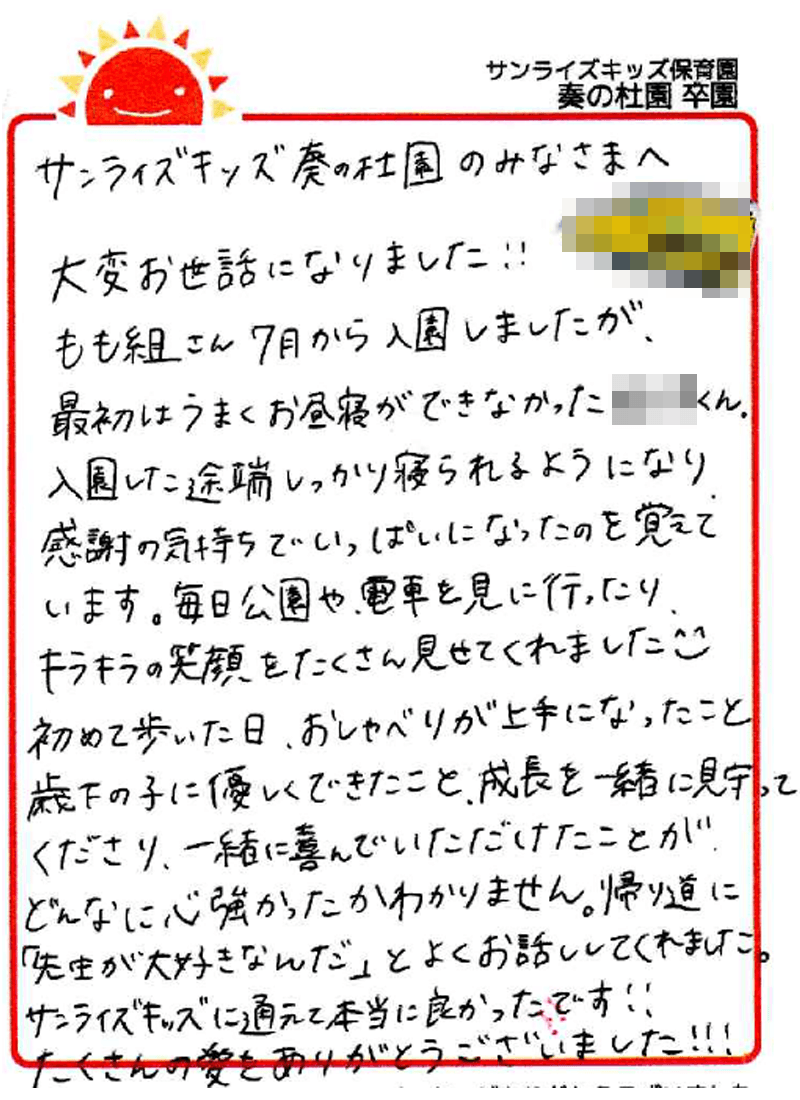 サンライズキッズ保育園
奏の杜園 卒園
サンライズキッズ奏の杜園のみなさまへ
大変お世話になりました!!
もも組さん7月から入園しましたが、
最初はうまくお昼寝ができなかった くん.
入園した途端しっかり寝られるようになり、
感謝の気持ちでいっぱいになったのを覚えて
います。毎日公園や、電車を見に行ったり、
キラキラの笑顔をたくさん見せてくれました^^
初めて歩いた日、おしゃべりが上手になったこと
歳下の子に優しくできたこと、成長を一緒に見守って
くださり、一緒に喜んでいただけたことが、
どんなに心強かったかわかりません。帰り道に
「先生が大好きなんだ」とよくお話ししてくれました。
サンライズキッズに通えて本当に良かったです!!
たくさんの愛をありがとうございました!!!